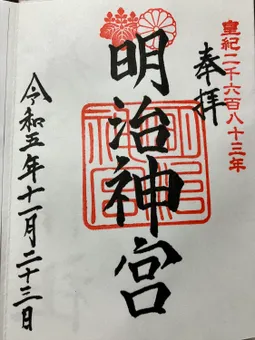 皇紀二千六百八十三年
奉拝
明治神宮
明治神宮
令和五年十一月二十三日